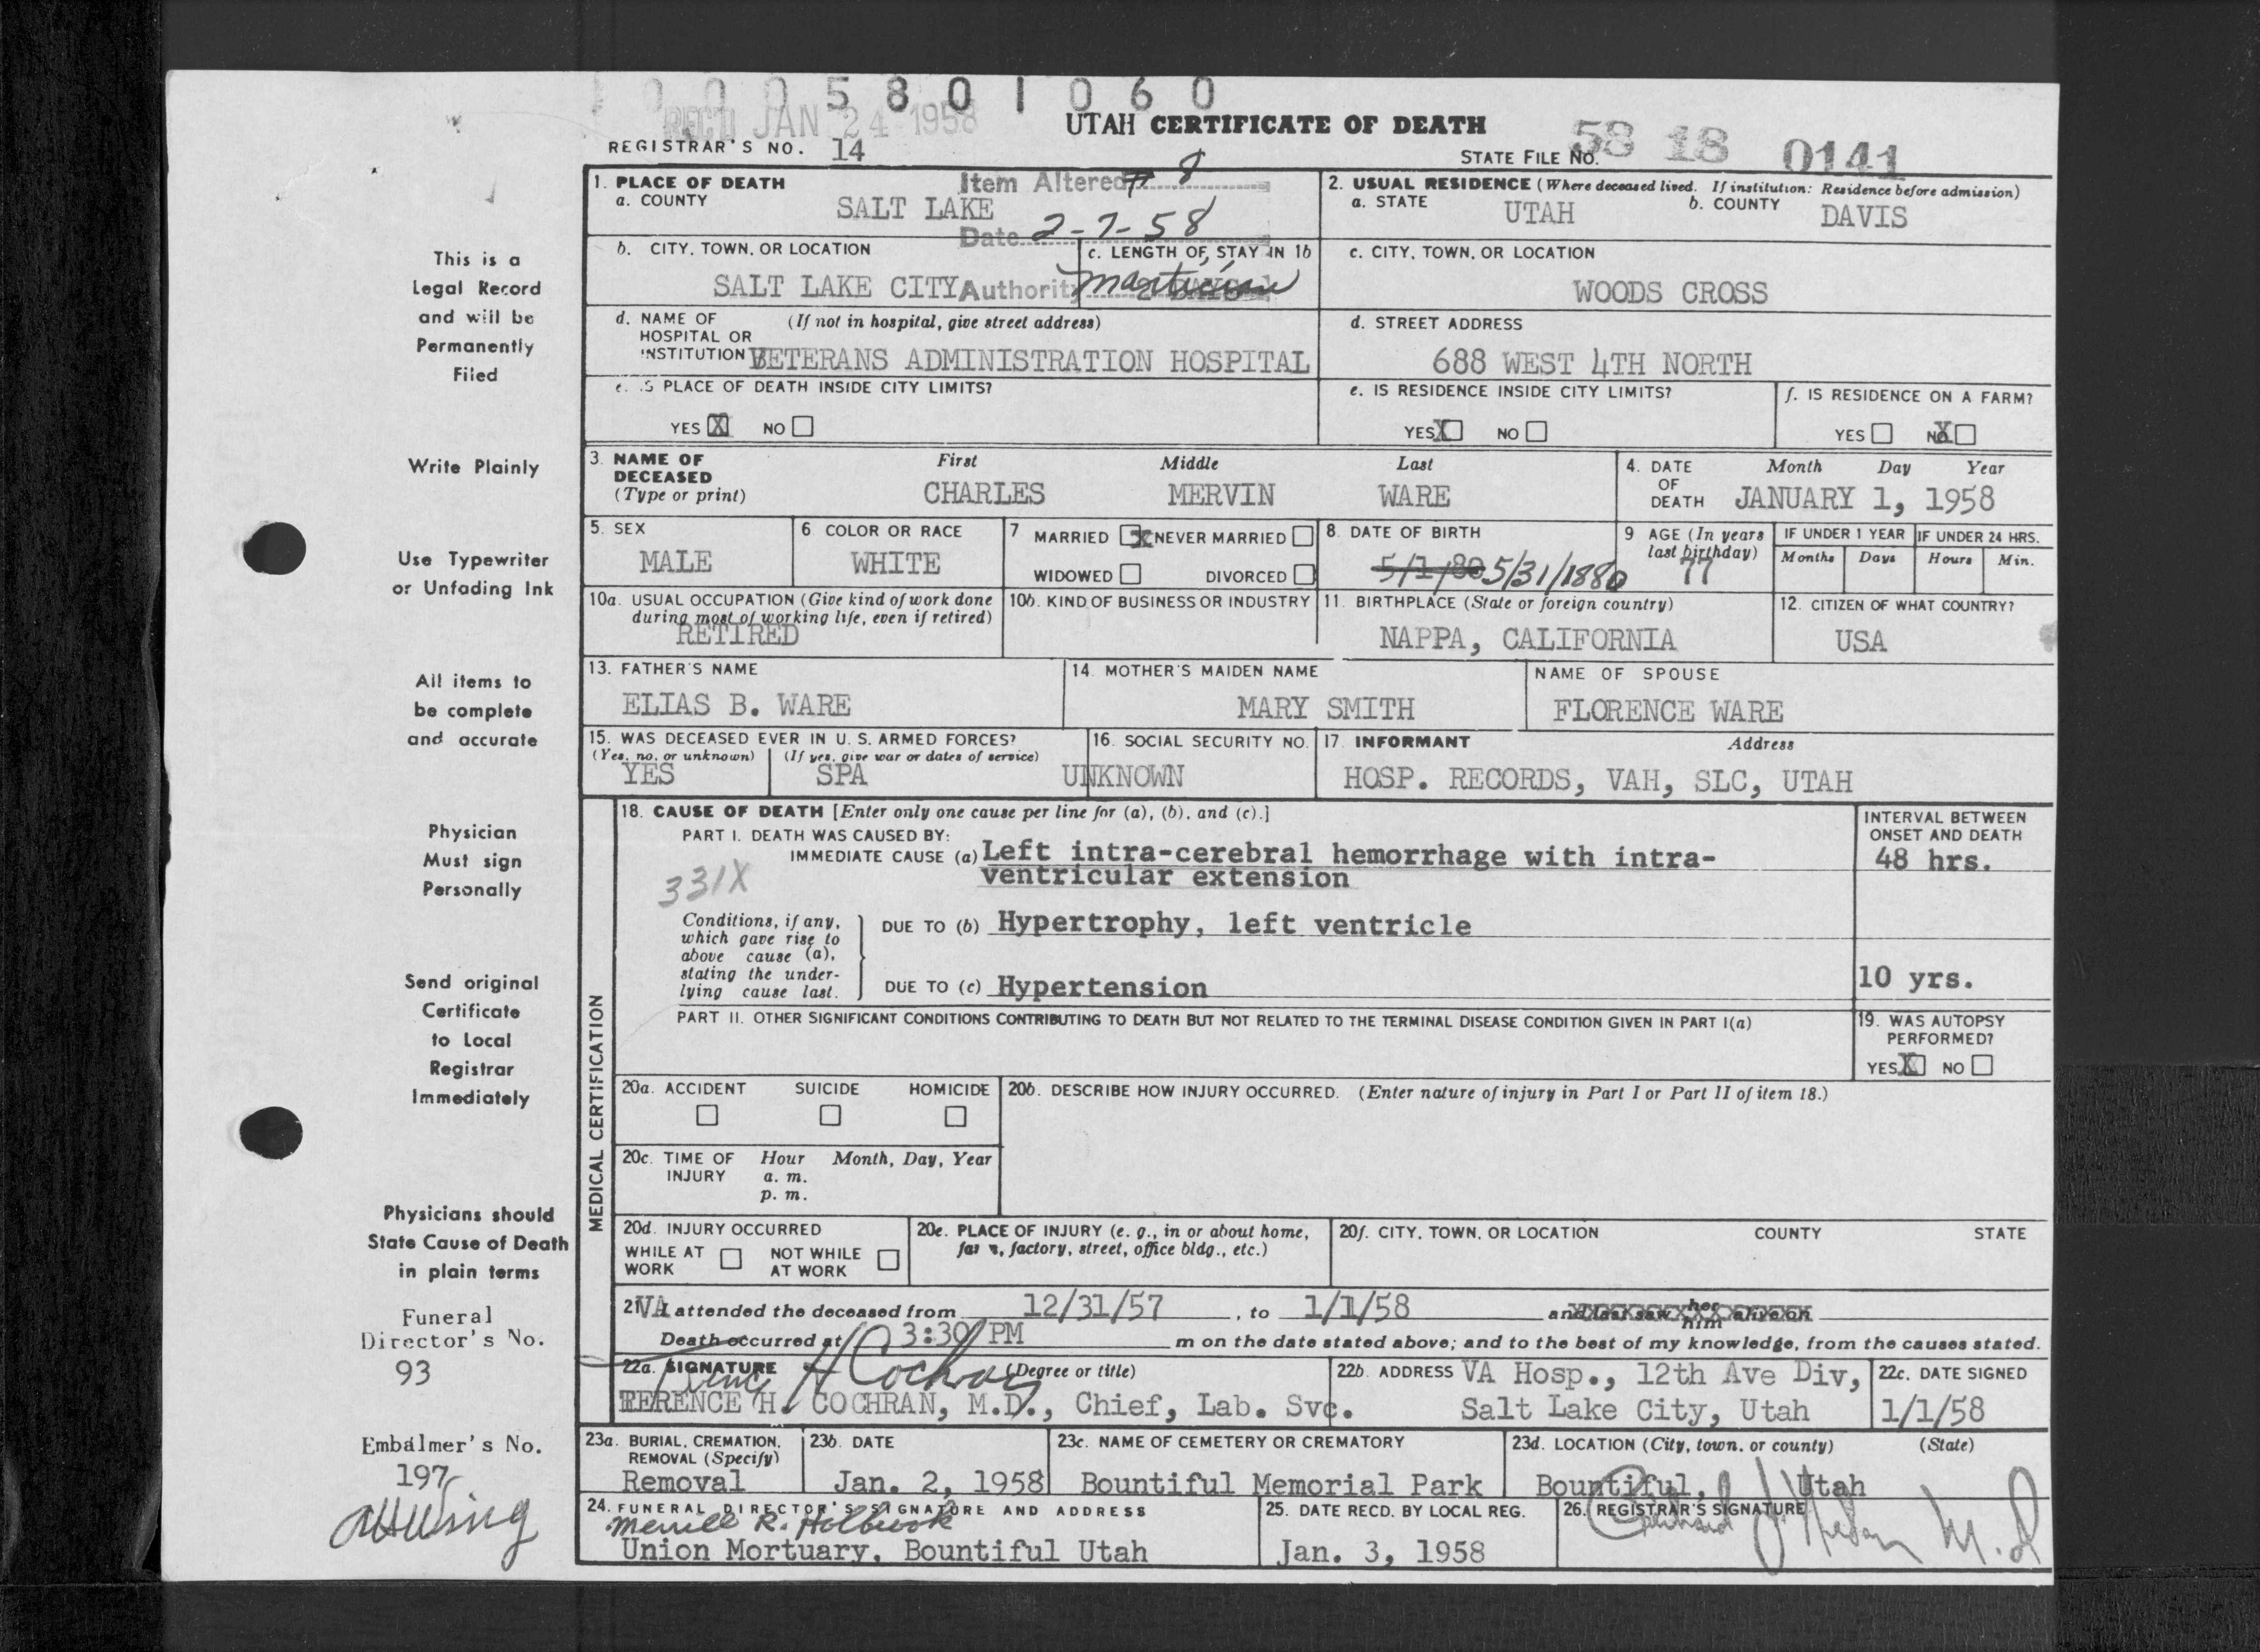 0005801060
REC'D JAN 24 1958
UTAH CERTIFICATE OF DEATH
REGISTRAR'S NO. 14
STATE FILE NO. 58 18 0141
Item Altered # 8
Date 2-7-58
Authority Mortician
1. PLACE OF DEATH
a. COUNTY SALT LAKE
2. USUAL RESIDENCE (Where deceased lived. If institution: Residence before admission)
a. STATE UTAH b. COUNTY DAVIS
b. CITY, TOWN, OR LOCATION SALT LAKE CITY
c. LENGTH OF STAY IN 1b
c. CITY, TOWN, OR LOCATION
WOODS CROSS
d. NAME OF HOSPITAL OR INSTITUTION (If not in hospital, give street address)
VETERANS ADMINISTRATION HOSPITAL
d. STREET ADDRESS
688 WEST 4TH NORTH
e. IS PLACE OF DEATH INSIDE CITY LIMITS?
YES X NO
e. IS RESIDENCE INSIDE CITY LIMITS?
YES X NO
f. IS RESIDENCE ON A FARM?
YES NO X
3. NAME OF DECEASED (Type or print)
First Middle Last
CHARLES MERVIN WARE
4. DATE OF DEATH Month Day Year
JANUARY 1, 1958
5. SEX
MALE
6 COLOR OR RACE
WHITE
7 MARRIED X NEVER MARRIED
WIDOWED DIVORCED
8. DATE OF BIRTH
5/1/80 5/31/1880
9 AGE (In years last birthday)
77
IF UNDER 1 YEAR
Months Days
IF UNDER 24 HRS.
Hours Min.
10a. USUAL OCCUPATION (Give kind of work done during most of working life, even if retired)
RETIRED
10b. KIND OF BUSINESS OR INDUSTRY
11. BIRTHPLACE (State or foreign country)
NAPPA, CALIFORNIA
12. CITIZEN OF WHAT COUNTRY?
USA
13. FATHER'S NAME
ELIAS B. WARE
14. MOTHER'S MAIDEN NAME
MARY SMITH
NAME OF SPOUSE
FLORENCE WARE
15. WAS DECEASED EVER IN U. S. ARMED FORCES?
(Yes, no, or unknown) (If yes, give war or dates of service)
YES SPA
16. SOCIAL SECURITY NO.
UNKNOWN
17. INFORMANT Address
HOSP. RECORDS, VAH, SLC, UTAH
MEDICAL CERTIFICATION
18. CAUSE OF DEATH [Enter only one cause per line for (a), (b), and (c).]
PART I. DEATH WAS CAUSED BY:
IMMEDIATE CAUSE (a) Left intra-cerebral hemorrhage with intra-
ventricular extension
331X
INTERVAL BETWEEN ONSET AND DEATH
48 hrs.
Conditions, if any, which gave rise to above cause (a), stating the underlying cause last.
DUE TO (b) Hypertrophy, left ventricle
DUE TO (c) Hypertension
10 yrs.
PART II. OTHER SIGNIFICANT CONDITIONS CONTRIBUTING TO DEATH BUT NOT RELATED TO THE TERMINAL DISEASE CONDITION GIVEN IN PART I(a)
19. WAS AUTOPSY PERFORMED?
YES X NO
20a. ACCIDENT SUICIDE HOMICIDE
20b. DESCRIBE HOW INJURY OCCURRED. (Enter nature of injury in Part I or Part II of item 18.)
20c. TIME OF INJURY Hour Month, Day, Year
a. m.
p. m.
20d. INJURY OCCURRED
WHILE AT WORK NOT WHILE AT WORK
20e. PLACE OF INJURY (e. g., in or about home, farm, factory, street, office bldg., etc.)
20f. CITY, TOWN, OR LOCATION COUNTY STATE
21 VA attended the deceased from 12/31/57, to 1/1/58 and last saw her him alive on
Death occurred at 3:30 PM m on the date stated above; and to the best of my knowledge, from the causes stated.
22a. SIGNATURE (Degree or title)
Terence H Cochran
TERENCE H. COCHRAN, M.D., Chief, Lab. Svc.
22b. ADDRESS VA Hosp., 12th Ave Div,
Salt Lake City, Utah
22c. DATE SIGNED
1/1/58
23a. BURIAL, CREMATION, REMOVAL (Specify)
Removal
23b. DATE
Jan. 2, 1958
23c. NAME OF CEMETERY OR CREMATORY
Bountiful Memorial Park
23d. LOCATION (City, town, or county) (State)
Bountiful, Utah
24. FUNERAL DIRECTOR'S SIGNATURE AND ADDRESS
Merrill R. Holbrook
Union Mortuary, Bountiful Utah
25. DATE RECD. BY LOCAL REG.
Jan. 3, 1958
26. REGISTRAR'S SIGNATURE
M.D
This is a
Legal Record
and will be
Permanently
Filed
Write Plainly
Use Typewriter
or Unfading Ink
All items to
be complete
and accurate
Physician
Must sign
Personally
Send original
Certificate
to Local
Registrar
Immediately
Physicians should
State Cause of Death
in plain terms
Funeral
Director's No.
93
Embalmer's No.
197